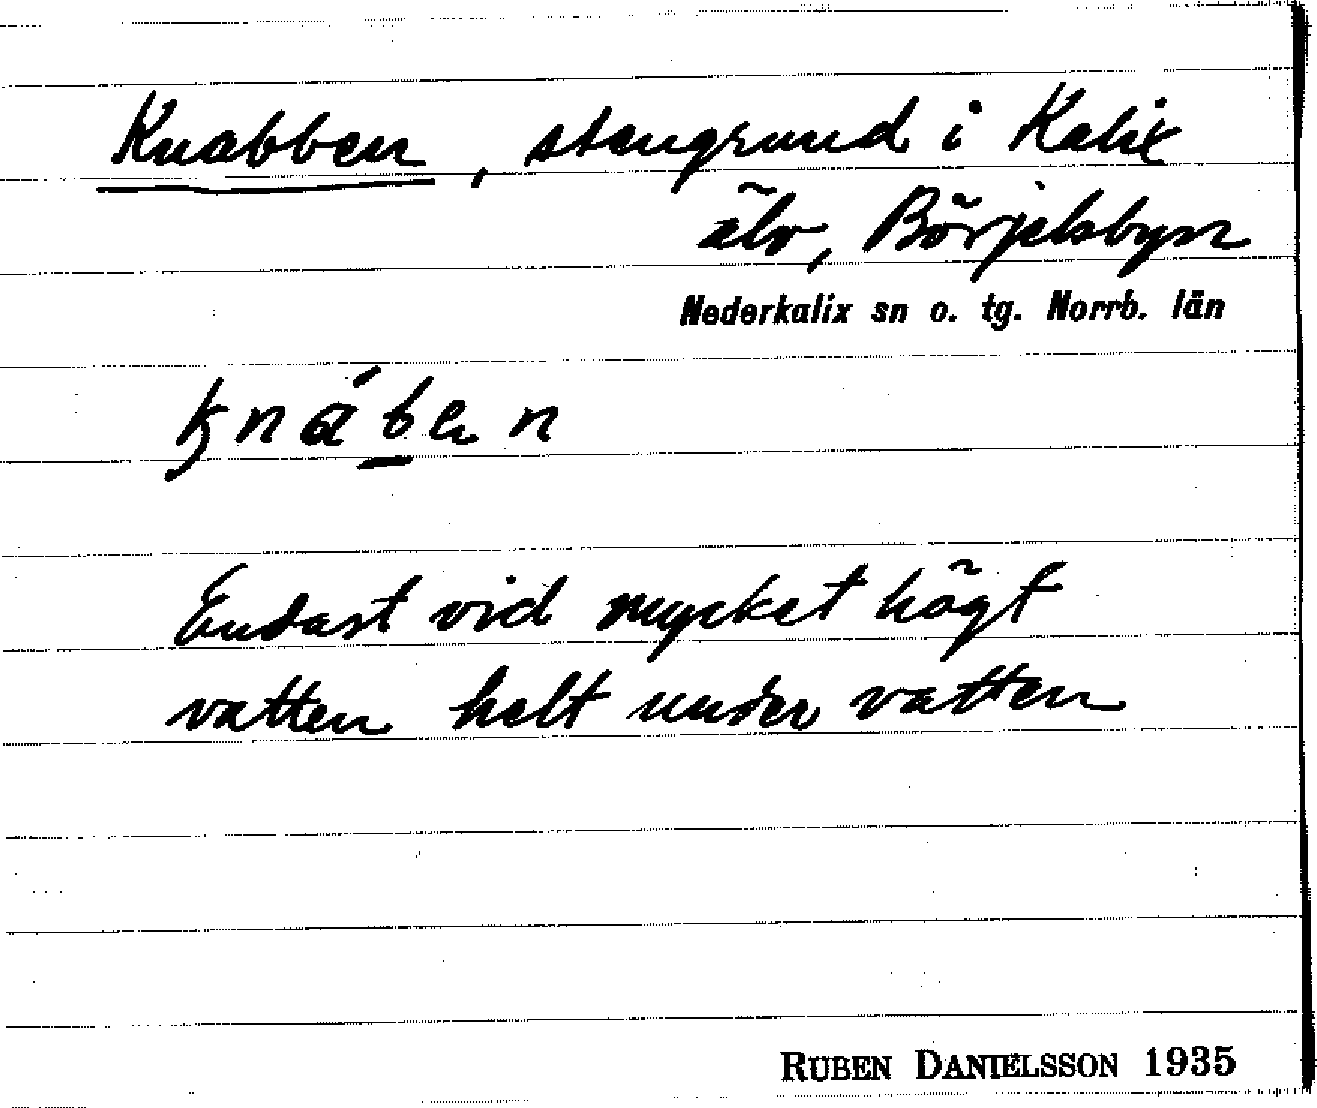 Knabben, stengrund i Kalix
älv, Börjelsbyn
Nederkalix sn o. tg. Norrb. län
Endast vid mycket högt
vatten helt under vatten
RUBEN DANIELSSON 1935